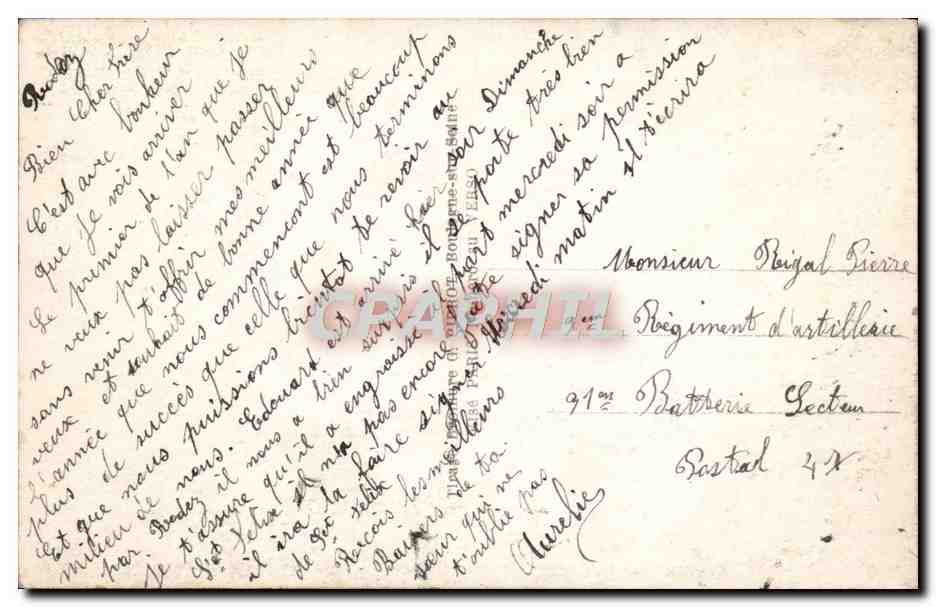 Rodez
Bien Cher frère
C'est avec bonheur
que je vois arriver
Le premier de l'an que je
ne veux pas laisser passer
sans venir t'offrir mes meilleurs
veux et souhait de bonne année que
L'année que nous commencont est beaucoup
plus de succès que celle que nous terminons
Et que nous puissions bientot te revoir au
milieu de nous. Edouard est arrivé hier soir Dimanche
par Rodez il nous a bien surpris il se porte très bien
Je t'assure qu'il a engraissé il part mercredi soir a
St Felix il n'a pas encore faite signer sa permission
il ira la faire signer Mercredi matin il t'ecrira
de St Felix
Recois les meilleurs
Baisers de ta
sœur qui ne
t'oublie pas
Aurelie
Monsieur Rigal Pierre
9eme Régiment d'artillerie
91me Battterie Secteur
Postal 4X
Boulogne-sur-Seine
VERSO
CPARPHIL